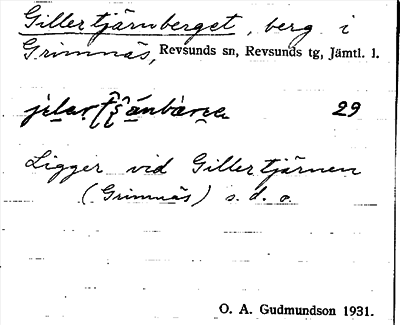 Gillertjärnberget, berg i
Grimnäs, Revsunds sn, Revsunds tg, Jämtl. l.
29
Ligger vid Gillertjärnen
(Grimnäs) s. d. o.
O. A. Gudmundson 1931.